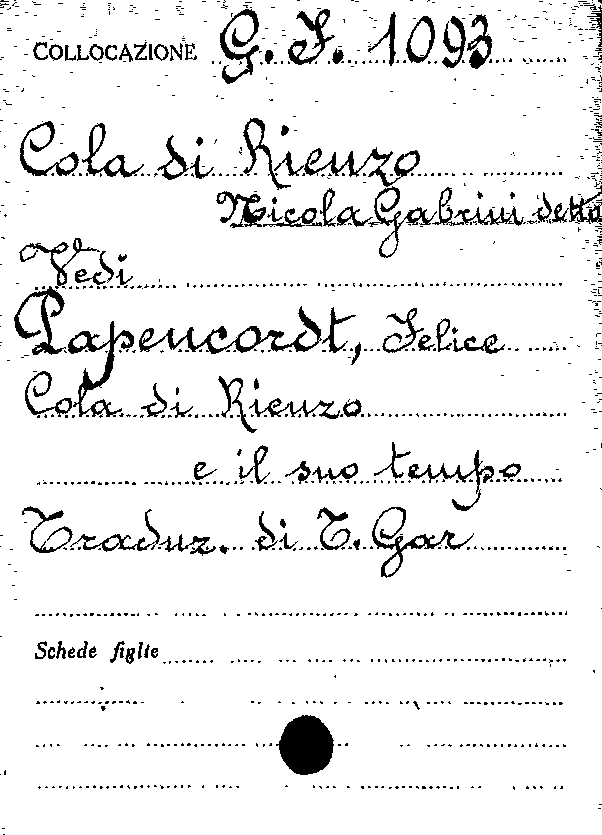 COLLOCAZIONE G. F. 1093
Cola di Rienzo
Nicola Gabrini detto
Vedi
Papencordt, Felice
Cola di Rienzo
e il suo tempo
Traduz. di T. Gar
Schede figlie